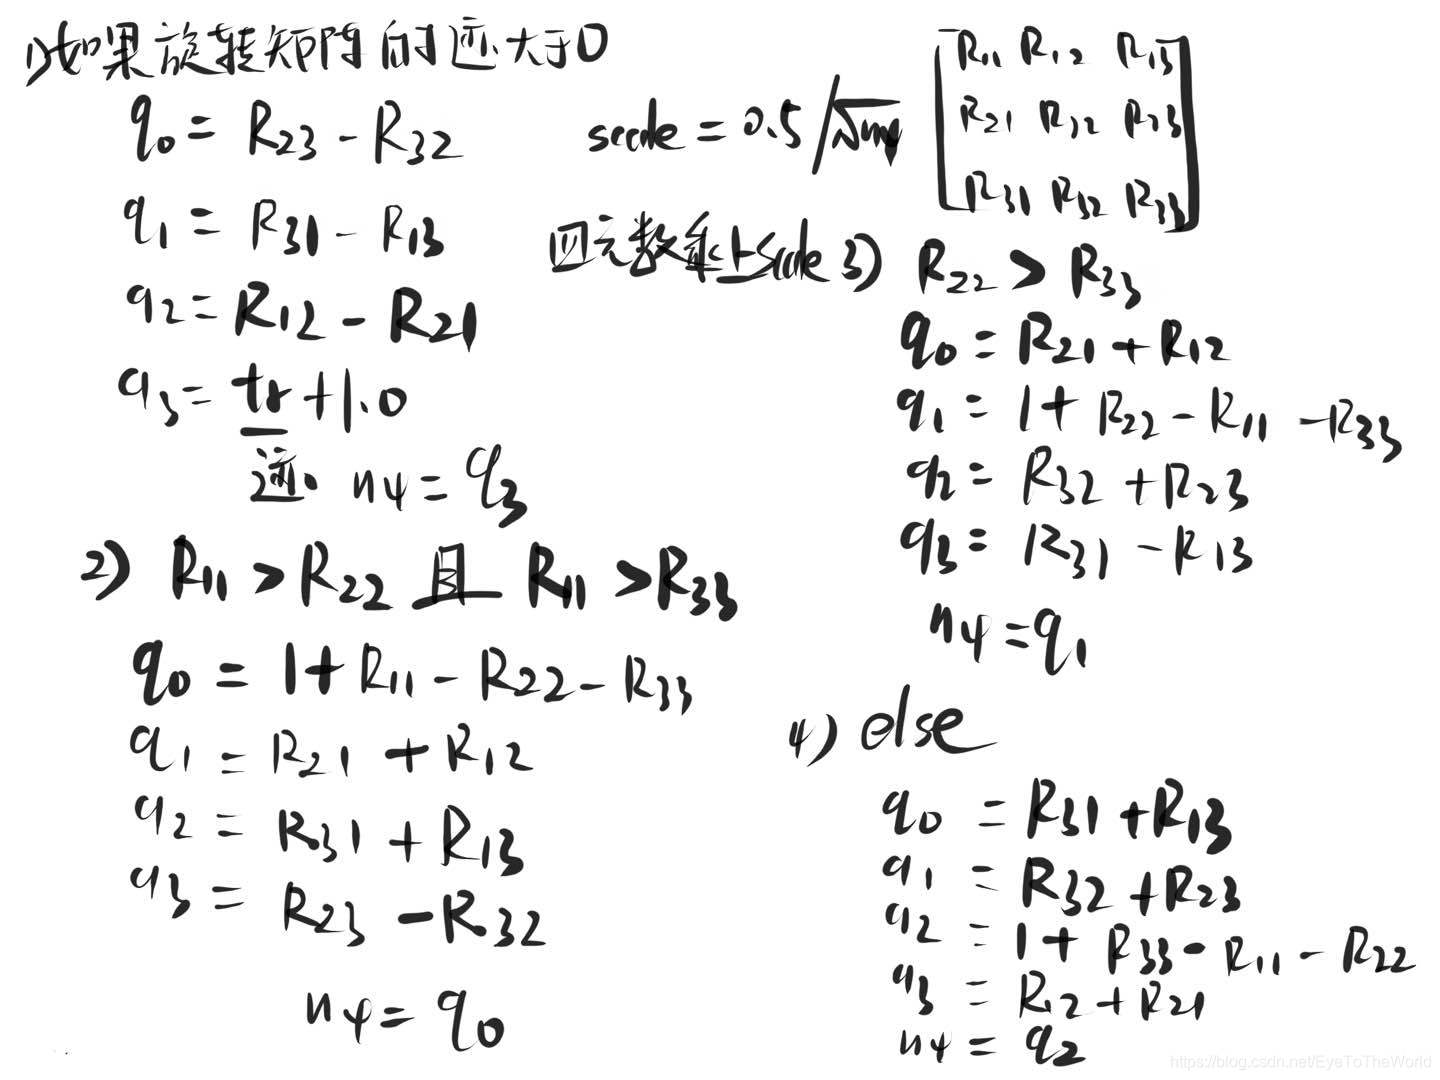 1)如果旋转矩阵的迹大于0
q0 = R23 - R32
q1 = R31 - R13
q2 = R12 - R21
q3 = tr + 1.0
迹 n4 = q3
scale = 0.5/√n4
四元数乘上Scale
R11 R12 R13
R21 R22 R23
R31 R32 R33
2) R11 > R22 且 R11 > R33
q0 = 1 + R11 - R22 - R33
q1 = R21 + R12
q2 = R31 + R13
q3 = R23 - R32
n4 = q0
3) R22 > R33
q0 = R21 + R12
q1 = 1 + R22 - R11 - R33
q2 = R32 + R23
q3 = R31 - R13
n4 = q1
4) else
q0 = R31 + R13
q1 = R32 + R23
q2 = 1 + R33 - R11 - R22
q3 = R12 + R21
n4 = q2
https://blog.csdn.net/EyeToTheWorld